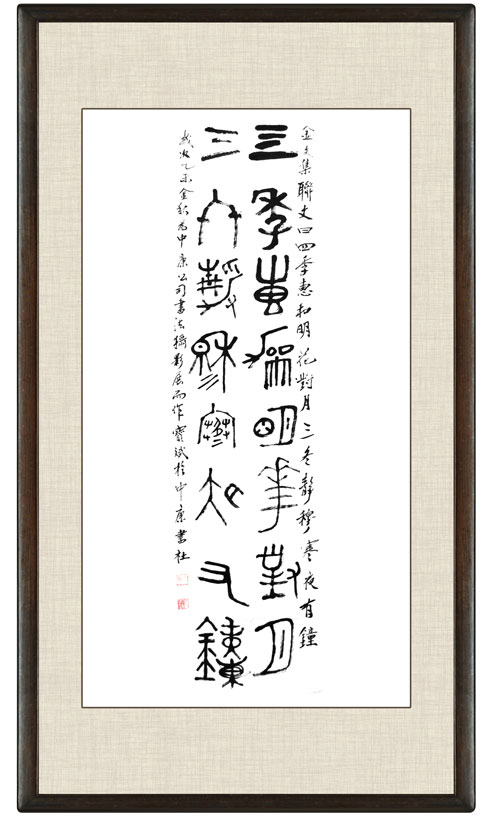 金文集聯文曰四季惠和明花對月三冬靜穆寒夜有鐘
亖季惠龢明華對月
三冬靜穆寒夜又鐘
歲次乙未金秋為申康公司書法攝影展而作寶斌於申康書社